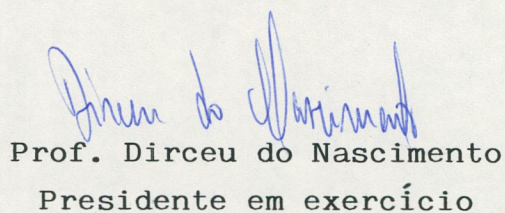 Dirceu do Nascimento
Prof. Dirceu do Nascimento
Presidente em exercício